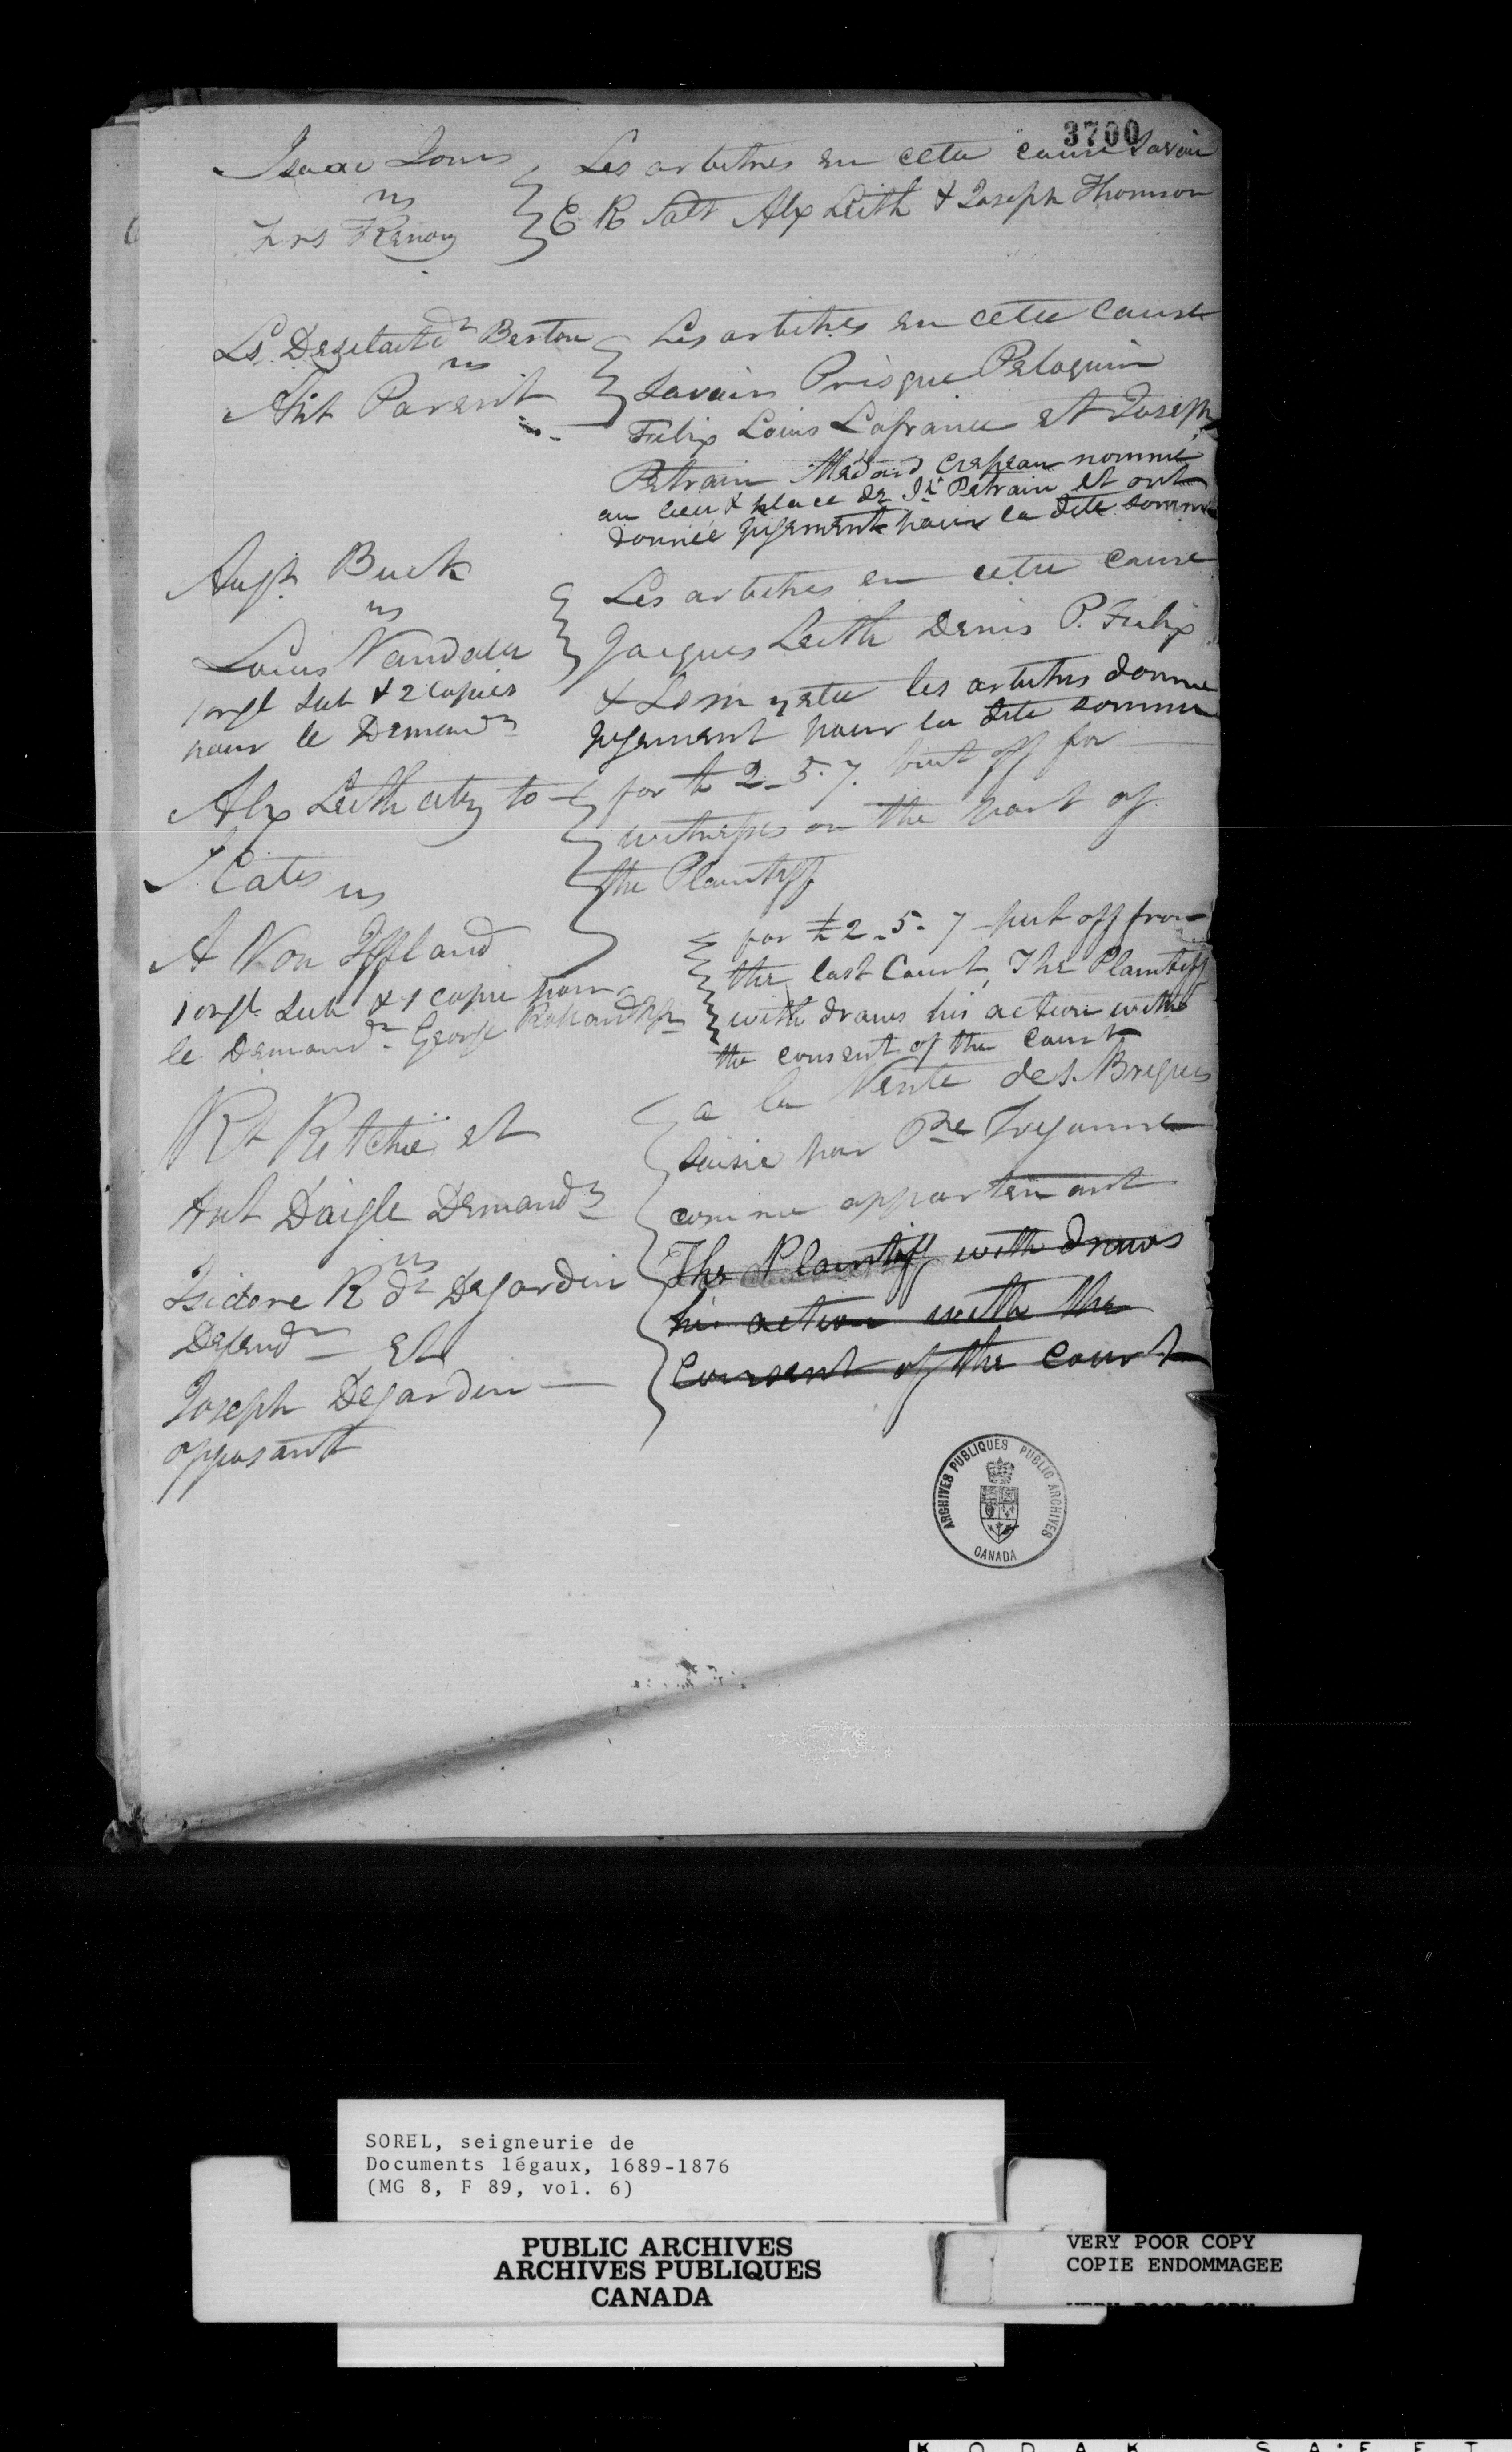 3700
Isaac Louis
vs
Frs
Les arbitres en cette cause Savoir
E R Salt Alx Leith & Joseph Thomson
Ls Berton
vs
Ant Parent
Les arbitres en cette cause
Savoir Prisque Peloquin
Felix Louis Lafrance et Joseph
Petrain Médard Crepeau nommé
au lieu & place de Jh Petrain et ont
donnée jugement pour la dite somme
Augt Buck
vs
Louis Vandall
1 orgl Sub & 2 copies
pour le Demandr
Les arbitres en cette cause
Jacques Leith Denis P. Felix
& les arbitres donne
jugement pour la dite somme
Alx Leith atty to
Cates vs
A Von Iffland
1 orgl Sub & 1 copie pour
le Demandr George
for £ 2-5-7. put off for
witnesses on the part of
the Plaintiff
for £2-5-7 put off from
the last Court, The Plaintiff
with draws his action with
the consent of the Court
Rt Ritchie et
Ant Daigle Demandrs
vs
Isidore R dt Dejardin
Defendr et
Joseph Dejardin
opposant
a la Vente des Briques
Saisie par Pre
comme appartenant
The Plaintiff with draws
his action with the
consent of the court
ARCHIVES PUBLIQUES PUBLIC ARCHIVES
CANADA
SOREL, seigneurie de
Documents légaux, 1689-1876
(MG 8, F 89, vol. 6)
PUBLIC ARCHIVES
ARCHIVES PUBLIQUES
CANADA
VERY POOR COPY
COPIE ENDOMMAGEE
VERY POOR COPY
KODAK SAFET